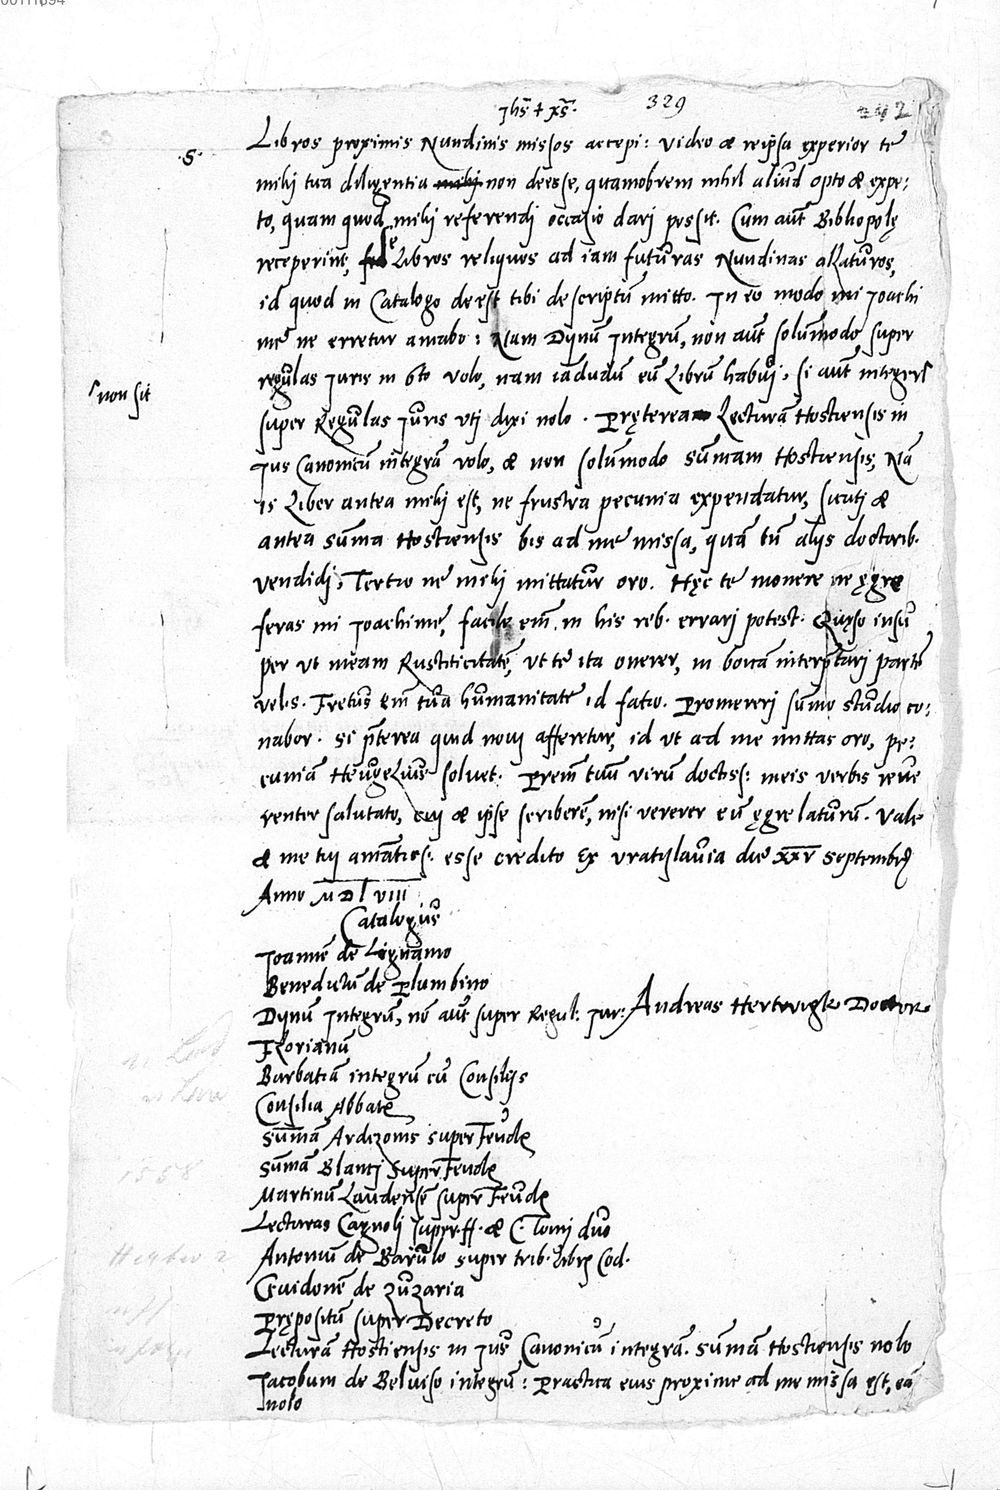 Jhs̄ + xs̄.
329
242
.S.
Libros proximis Nundinis missos accepi: video & reipsa experior te
mihj tua diligentia mihj non deesse, quamobrem nihil aliud opto & expe:
to, quam quod mihj referendj occasio dari possit. Cum aūt Bibliopolę
receperint, se Libros reliquos ad iam futuras Nundinas allaturos,
id quod in Catalogo deest tibi descriptū mitto. In eo modo mi Joachi
me ne erretur amabo: Nam Dynū Integrū, non aūt solūmodo super
regulas Juris in 6to volo, nam iādudū eū Librū habuj, si aūt integer
non sit
super Regulas Juris utj dixi nolo. Pręterea Lecturā Hostiensis in
Jus Canonicū integrā volo, & non solūmodo sūmam Hostiensis, Nā
is Liber antea mihj est, ne frustra pecunia expendatur, sicutj &
antea sūma Hostiensis bis ad me missa, quā tū alijs doctorib.
vendidj, Tertio ne mihj mittatur oro. Hęc te monere ne ęgre
feras mi Joachime, facile em̄ in his reb. errarj potest. Quęso insu
per ut meam Rusticitatē, ut te ita onerer, in bonā interp̄tarj partē
velis. Fretus em̄ tua humanitate id facio. Promererj sūmo studio co:
nabor. Si p̄terea quid novj afferetur, id ut ad me mittas oro, pe:
cuniā Heugelius solvet. Prem̄ tuū virū doctiss: meis verbis reve
renter salutato, cuj & ipse scriberē, nisi vererer eū ęgre laturū. Vale
& me tuj amātiss: esse credito Ex Vratislavia die xxv Septembr̄
Anno MDLVIII
Catalogus
Joannē de Lignamo
Benedictū de Plumbino
Dynū Integrū, nō aūt super Regul: Jur:
Andreas Hertwigk Doctor
Florianū
Barbatiā integrū cū Consilijs
Consilia Abbatꝭ
Sūmā Ardizonis super Feudꝭ
Sūmā Blancj super Feudꝭ
Martinū Laudensē super Feudꝭ
Lecturas Cagnolj super ff. & C. Tomi duo
Antoniū de Barulo super trib. libꝭ Cod.
Guidonē de Zuzaria
Prępositū super Decreto
Lecturā Hostiensis in Jus Canonicū integrā. Sūmā Hostiensis nolo
Jacobum de Belviso integrū: Practica eius proxime ad me missa ęst, eā
nolo
1558